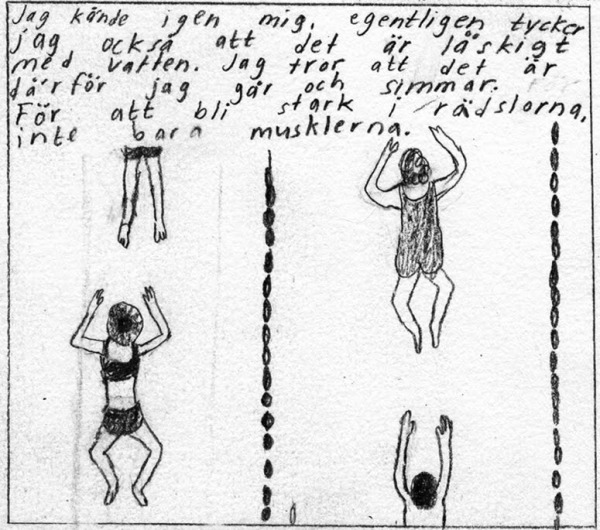 Jag kände igen mig, egentligen tycker
jag också att det är låskigt
med vatten. Jag tror att det är
därför jag går och simmar.
För att bli stark i rädslorna,
inte bara musklerna.